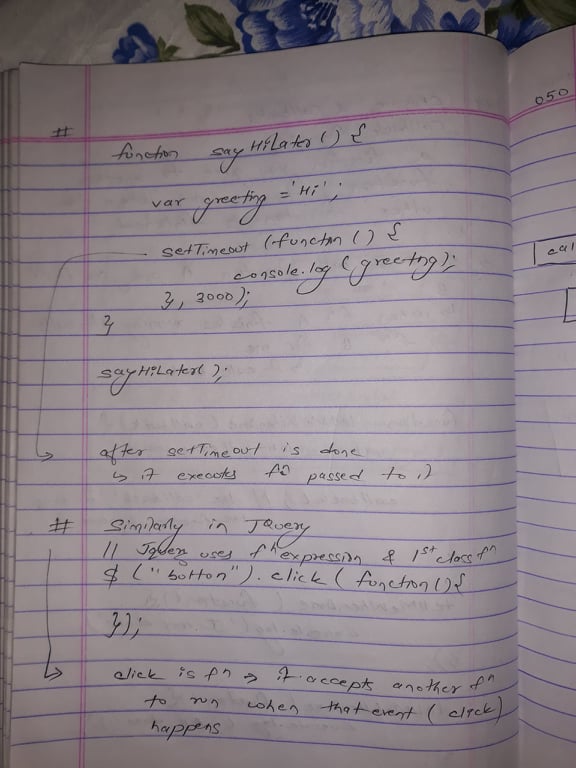 #
function sayHiLater() {
var greeting = 'Hi';
setTimeout (function () {
console.log (greeting);
}, 3000);
}
sayHiLater();
after setTimeout is done
↳ it executes f() passed to it
# Similarly in JQuery
// Jquery uses fⁿ expression & 1st class fⁿ
$ ("button").click ( function () {
});
click is fⁿ → it accepts another fⁿ
to run when that event (click)
happens
050
cal